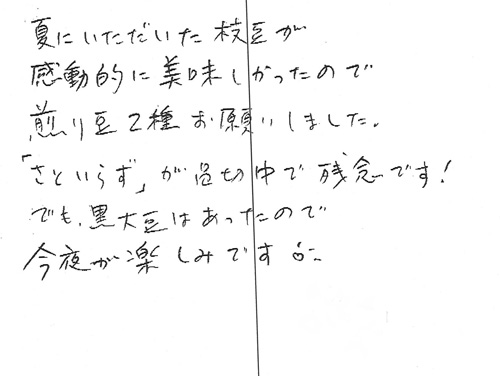 夏にいただいた枝豆が
感動的に美味しかったので
煎り豆2種お願いしました。
「さといらず」が品切中で残念です!
でも、黒大豆はあったので
今夜が楽しみです